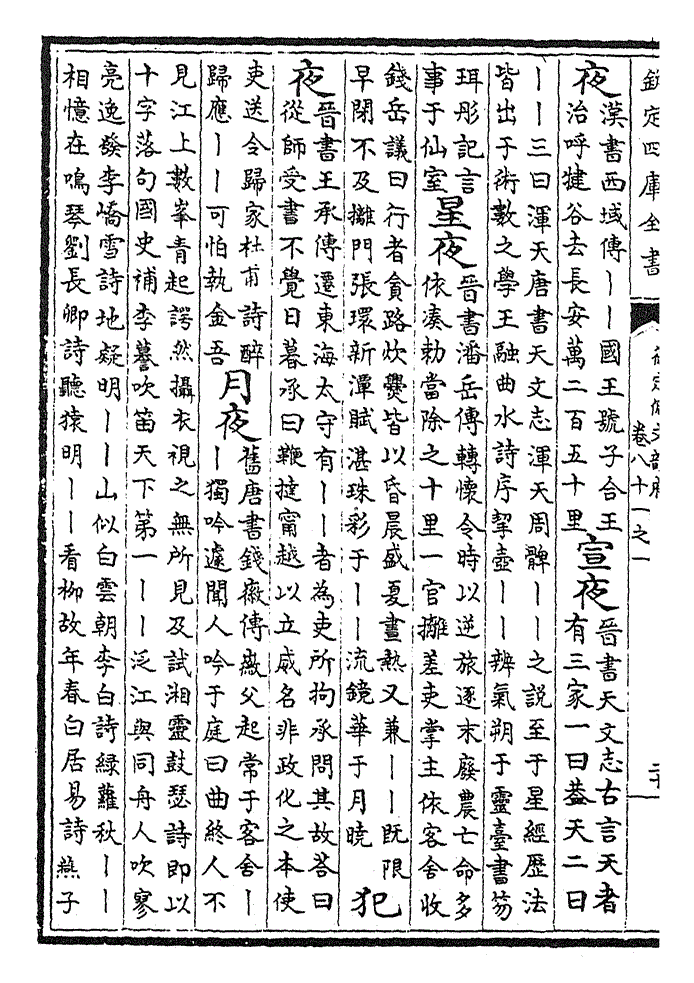 欽定四庫全書
御定佩文韻府
卷八十一之一
夜
漢書西域傳——國王號子合王
治呼犍谷去長安萬二百五十里
宣夜
晉書天文志古言天者
有三家一曰蓋天二曰
——三曰渾天唐書天文志渾天周髀——之説至于星經歷法
皆出于術數之學王融曲水詩序挈壺——辨氣朔于靈臺書笏
珥彤記言
事于仙室
星夜
晉書潘岳傳轉懷令時以逆旅逐末廢農亡命多
依湊勅當除之十里一官攡差吏掌主依客舍收
錢岳議曰行者貪路炊爨皆以昏晨盛夏晝熱又兼——既限
早閉不及攡門張環新潭賦湛珠彩于——流鏡華于月曉
犯
夜
晉書王承傳遷東海太守有——者為吏所拘承問其故答曰
從師受書不覺日暮承曰鞭撻甯越以立威名非政化之本使
吏送令歸家杜甫詩醉
歸應——可怕執金吾
月夜
舊唐書錢徽傳徽父起常于客舍—
—獨吟遽聞人吟于庭曰曲終人不
見江上數峯青起諤然攝衣視之無所見及試湘靈鼓瑟詩即以
十字落句國史補李謩吹笛天下第一——泛江與同舟人吹寥
亮逸發李嶠雪詩地疑明——山似白雲朝李白詩綠蘿秋——
相憶在鳴琴劉長卿詩聽猿明——看柳故年春白居易詩燕子